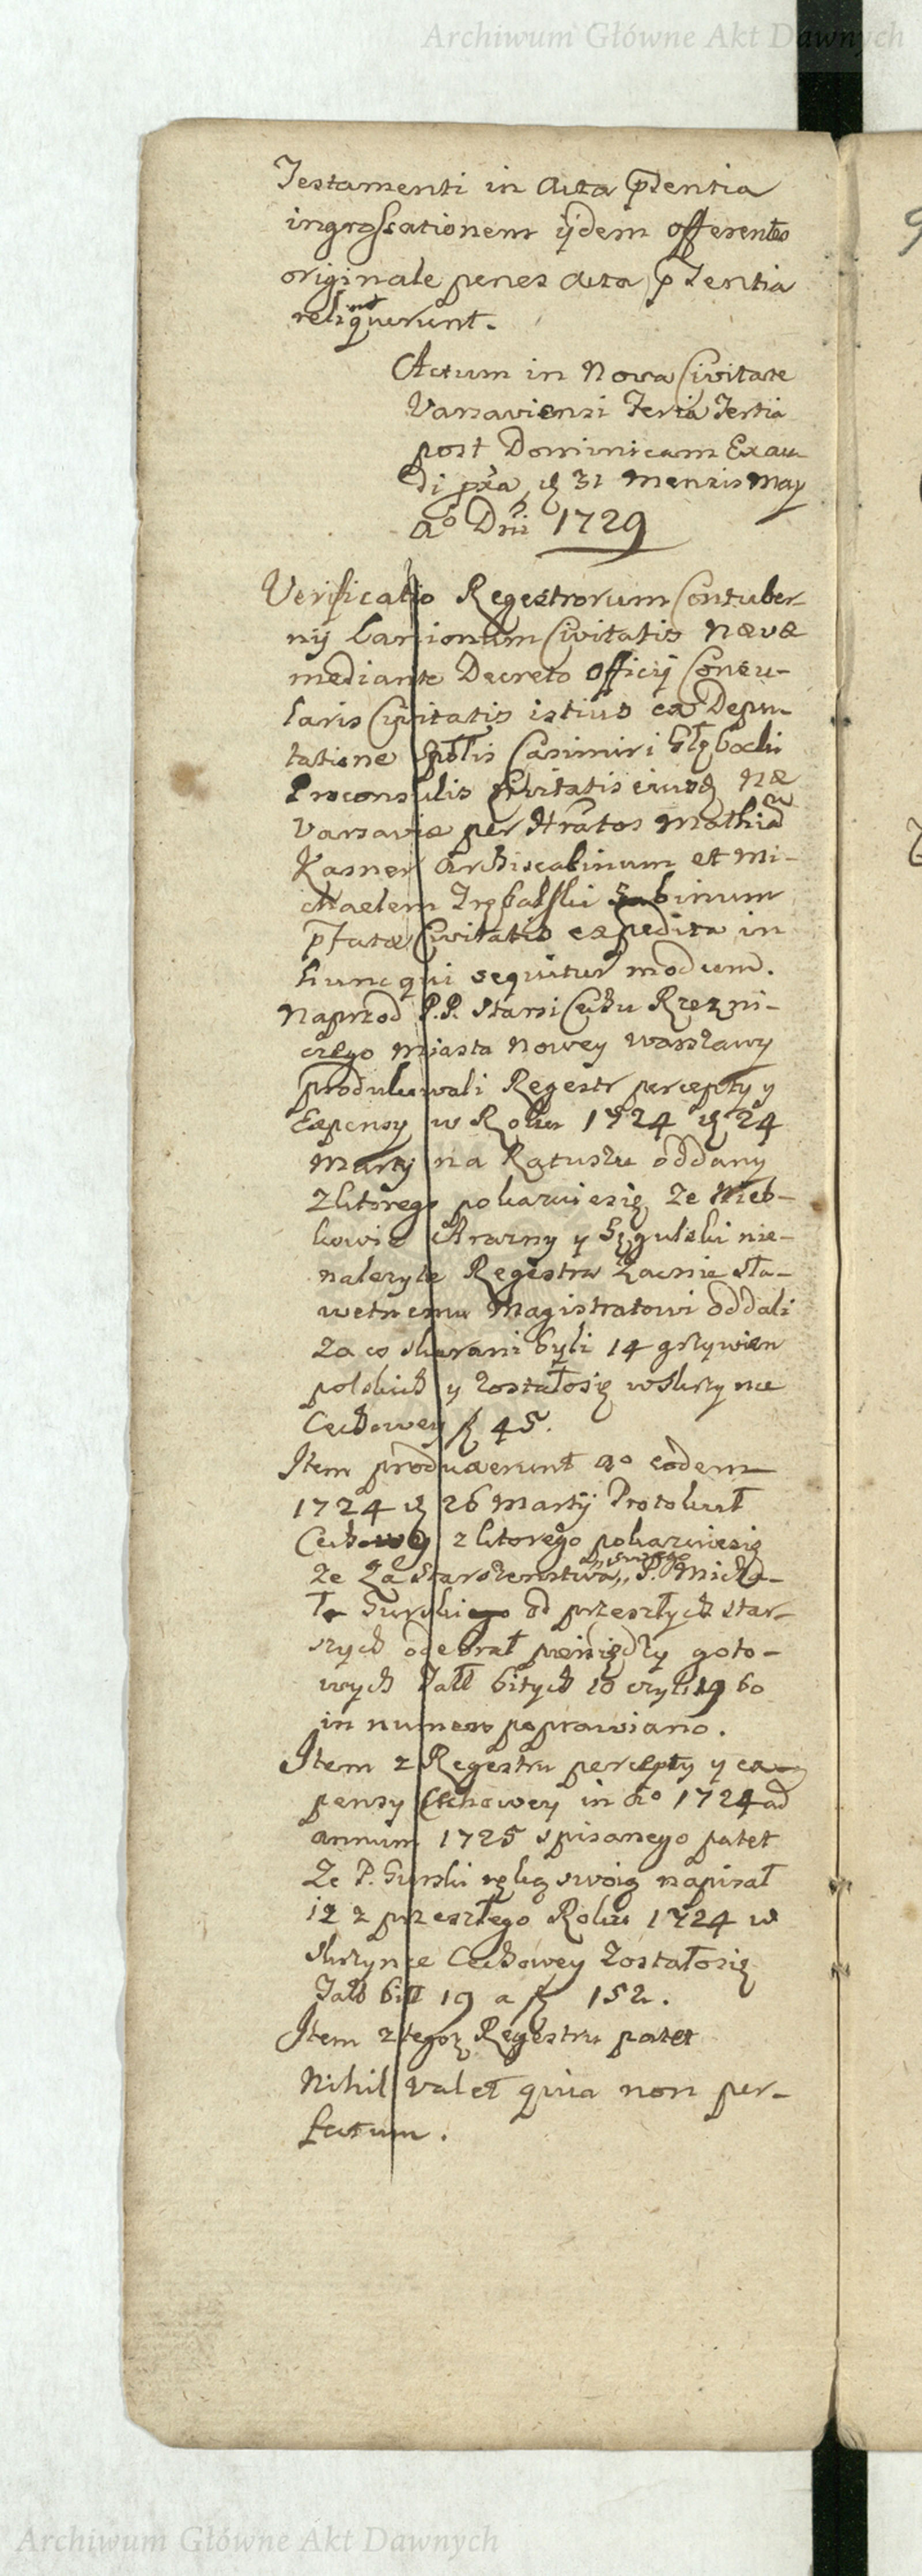 Archiwum Główne Akt Dawnych
Testamenti in Acta p̄sentia
ingrossationem ijdem offerentes
originale penes Acta p̄sentia
reliquerunt.
Actum in Nova Civitate
Varsaviensi Feria Tertia
post Dominicam Exau-
di p̄xa, 31 Mensis Maÿ
Aº Dni 1729
Verificatio Regestrorum Contuber-
nij Lanionum Civitatis Novæ
mediante Decreto Officij Consu-
laris Civitatis istius ex Depu-
tatione Casimiri Głębocki
Proconsulis Civitatis eiusd Næ
Varsaviæ per Mathia
Kasner Archiscabinum et Mi-
chaelem Scabinum
p̄fatæ Civitatis expedita in
hunc qui sequitur modum.
Naprzod P.P. Starsi Cechu Rzezni-
czego Miasta Nowey Warszawy
produkowali Regestr percepty y
Expensy w Roku 1724 24
Martij na Ratuszu oddany
z ktorego pokazuie się ze Nieb-
kowic y nie-
nalezyte Regestra Zacnie Sła-
wetnemu Magistratowi oddali
za co skarani byli 14 grzywien
polskich y zostało się w Skrzynce
Cechowey f 45.
Item produxerunt Aº eodem
1724 26 Martij Protokuł
Cechowy z ktorego pokazuie się
ze za Starszenstwa P. Micha-
ła Gurskiego od przeszłych Star-
szych odebrał pieniędzy goto-
wych Tall bitych 10 czyli 19 bo
in numero poprawiano.
Item z Regestru percepty y ex-
pensy Cechowey in Aº 1724 ad
annum 1725 spisanego patet
ze P. Gurski ręką swoią napisał
iz z przeszłego Roku 1724 w
Skrzynce Cechowey zostało się
Tall bitt 19 a f 152.
Item z tegoz Regestru patet
Nihil valet quia non per-
fectum.
Archiwum Główne Akt Dawnych